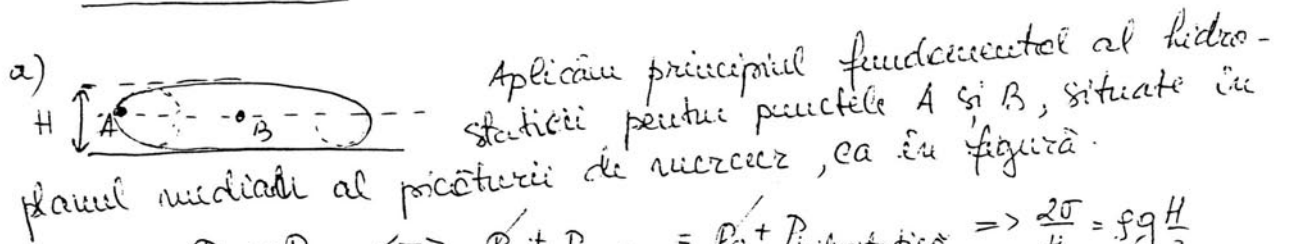 a)
H
A
B
Aplicăm principiul fundamental al hidro-
staticii pentru punctele A și B, situate în
planul median al picăturii de mercur, ca în figură.
=> 2σ = ρg H